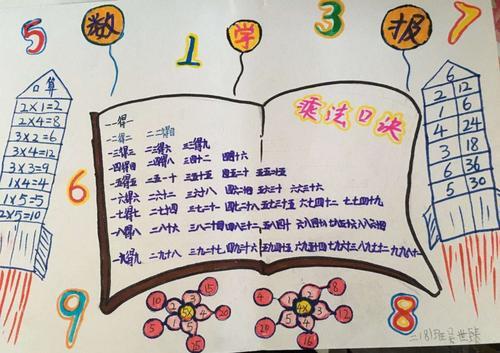 5 数 1 学 3 报 7
口算
2×1=2
2×4=8
3×2=6
3×4=12
3×3=9
1×4=4
1×5=5
2×5=10
乘法口决
一一得一
一二得二 二二得四
一三得三 二三得六 三三得九
一四得四 二四得八 三四十二 四四十六
一五得五 二五一十 三五十五 四五二十 五五二十五
一六得六 二六十二 三六十八 四六二十四 五六三十 六六三十六
一七得七 二七十四 三七二十一 四七二十八 五七三十五 六七四十二 七七四十九
一八得八 二八十六 三八二十四 四八三十二 五八四十 六八四十八 七八五十六 八八六十四
一九得九 二九十八 三九二十七 四九三十六 五九四十五 六九五十四 七九六十三 八九七十二 九九八十一
6
2 12
1 6
4 24
3 18
6 36
5 30
6
9
8
5×
10 15 20 25 5
2 3 4 5 1
4×
4 8 12 16 20
1 2 3 4 5
三(8)班